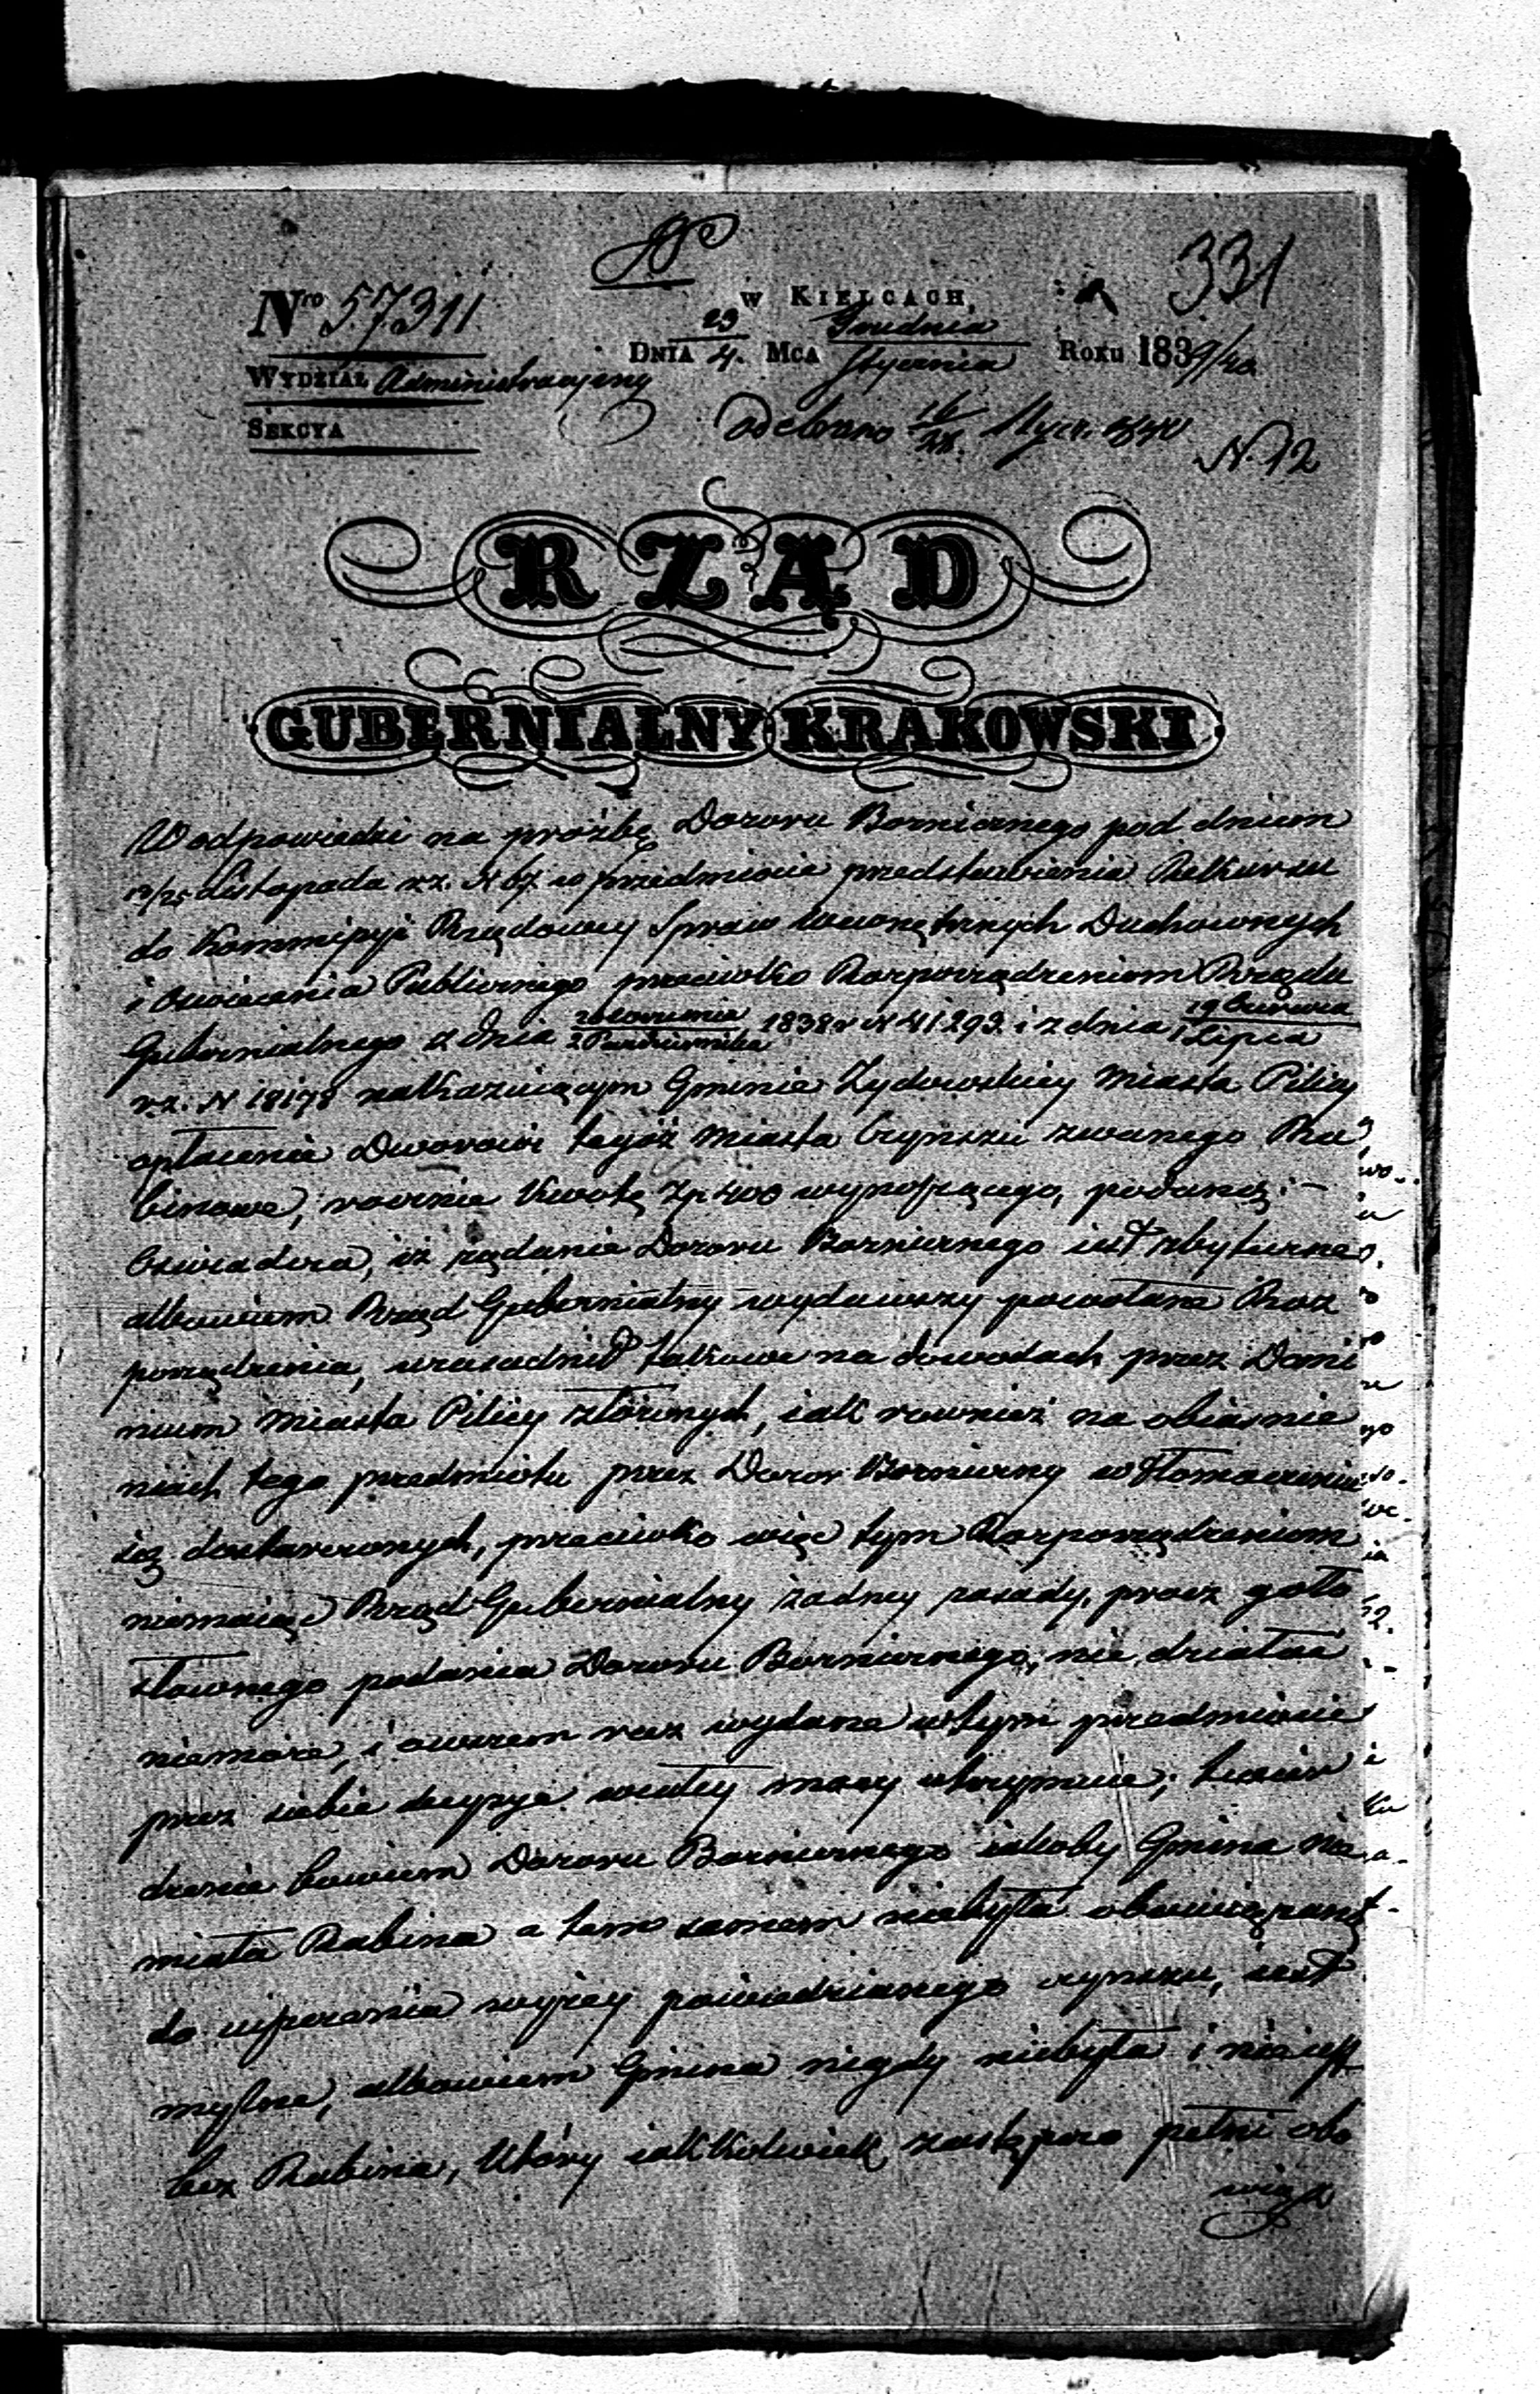 331
Nro 57311.
W KIELCACH,
DNIA 23/4. MCA Grudnia/Stycznia ROKU 1839/40
WYDZIAŁ Administracyjny
SEKCYA
Odebrano 16/28. Stycz. 1840
N. 12
RZĄD
GUBERNIALNY KRAKOWSKI
W odpowiedzi na prożbę Dozoru Boznicznego pod dniem
13/25 Listopada r.z. N 67 w przedmiocie przedstawienia Rekursu
do Kommissyi Rządowey Spraw Wewnętrznych Duchownych
i Oswiecenia Publicznego przeciwko Rozporządzeniom Rządu
Gubernialnego z dnia 20 Wrzesnia/2 Pazdziernika 1838 r N 41293. i z dnia 19 Czerwca/1 Lipca
r.z. N 18178 nakazuiącym Gminie Zydowskiey Miasta Pilicy
opłacenie Dworowi tegoż Miasta Czynszu zwanego Ra
binowe, rocznie kwotę Zp 400 wynoszącego, podaney: —
Oswiadcza, iż żądanie Dozoru Boznicznego iest zbyteczne,
albowiem Rząd Gubernialny wydawszy powołane Roz
porządzenia, uzasadnił takowe na dowodach przez Domi
nium Miasta Pilicy złożonych, iak rownież na obiasnie
niach tego przedmiotu przez Dozor Bozniczny w tłomaczeniu
się dostarczonych, przeciwko więc tym Rozporządzeniom
niemaiąc Rząd Gubernialny żadney zasady, procz goło
słownego podania Dozoru Bozniczego, nie działać
niemoże, i owszem raz wydane w tym przedmiocie
przez siebie decyzye w całey mocy utrzymuie; twier
dzenie bowiem Dozoru Bozniczego iakoby Gmina nie
miała Rabina a tem samem niebyła obowiązaną
do uiszczenia wyżey powiedzianego czynszu, iest
mylne, albowiem Gmina nigdy niebyła i nie iest
bez Rabina, który iakkolwiek zastępczo pełni obo
wiąz